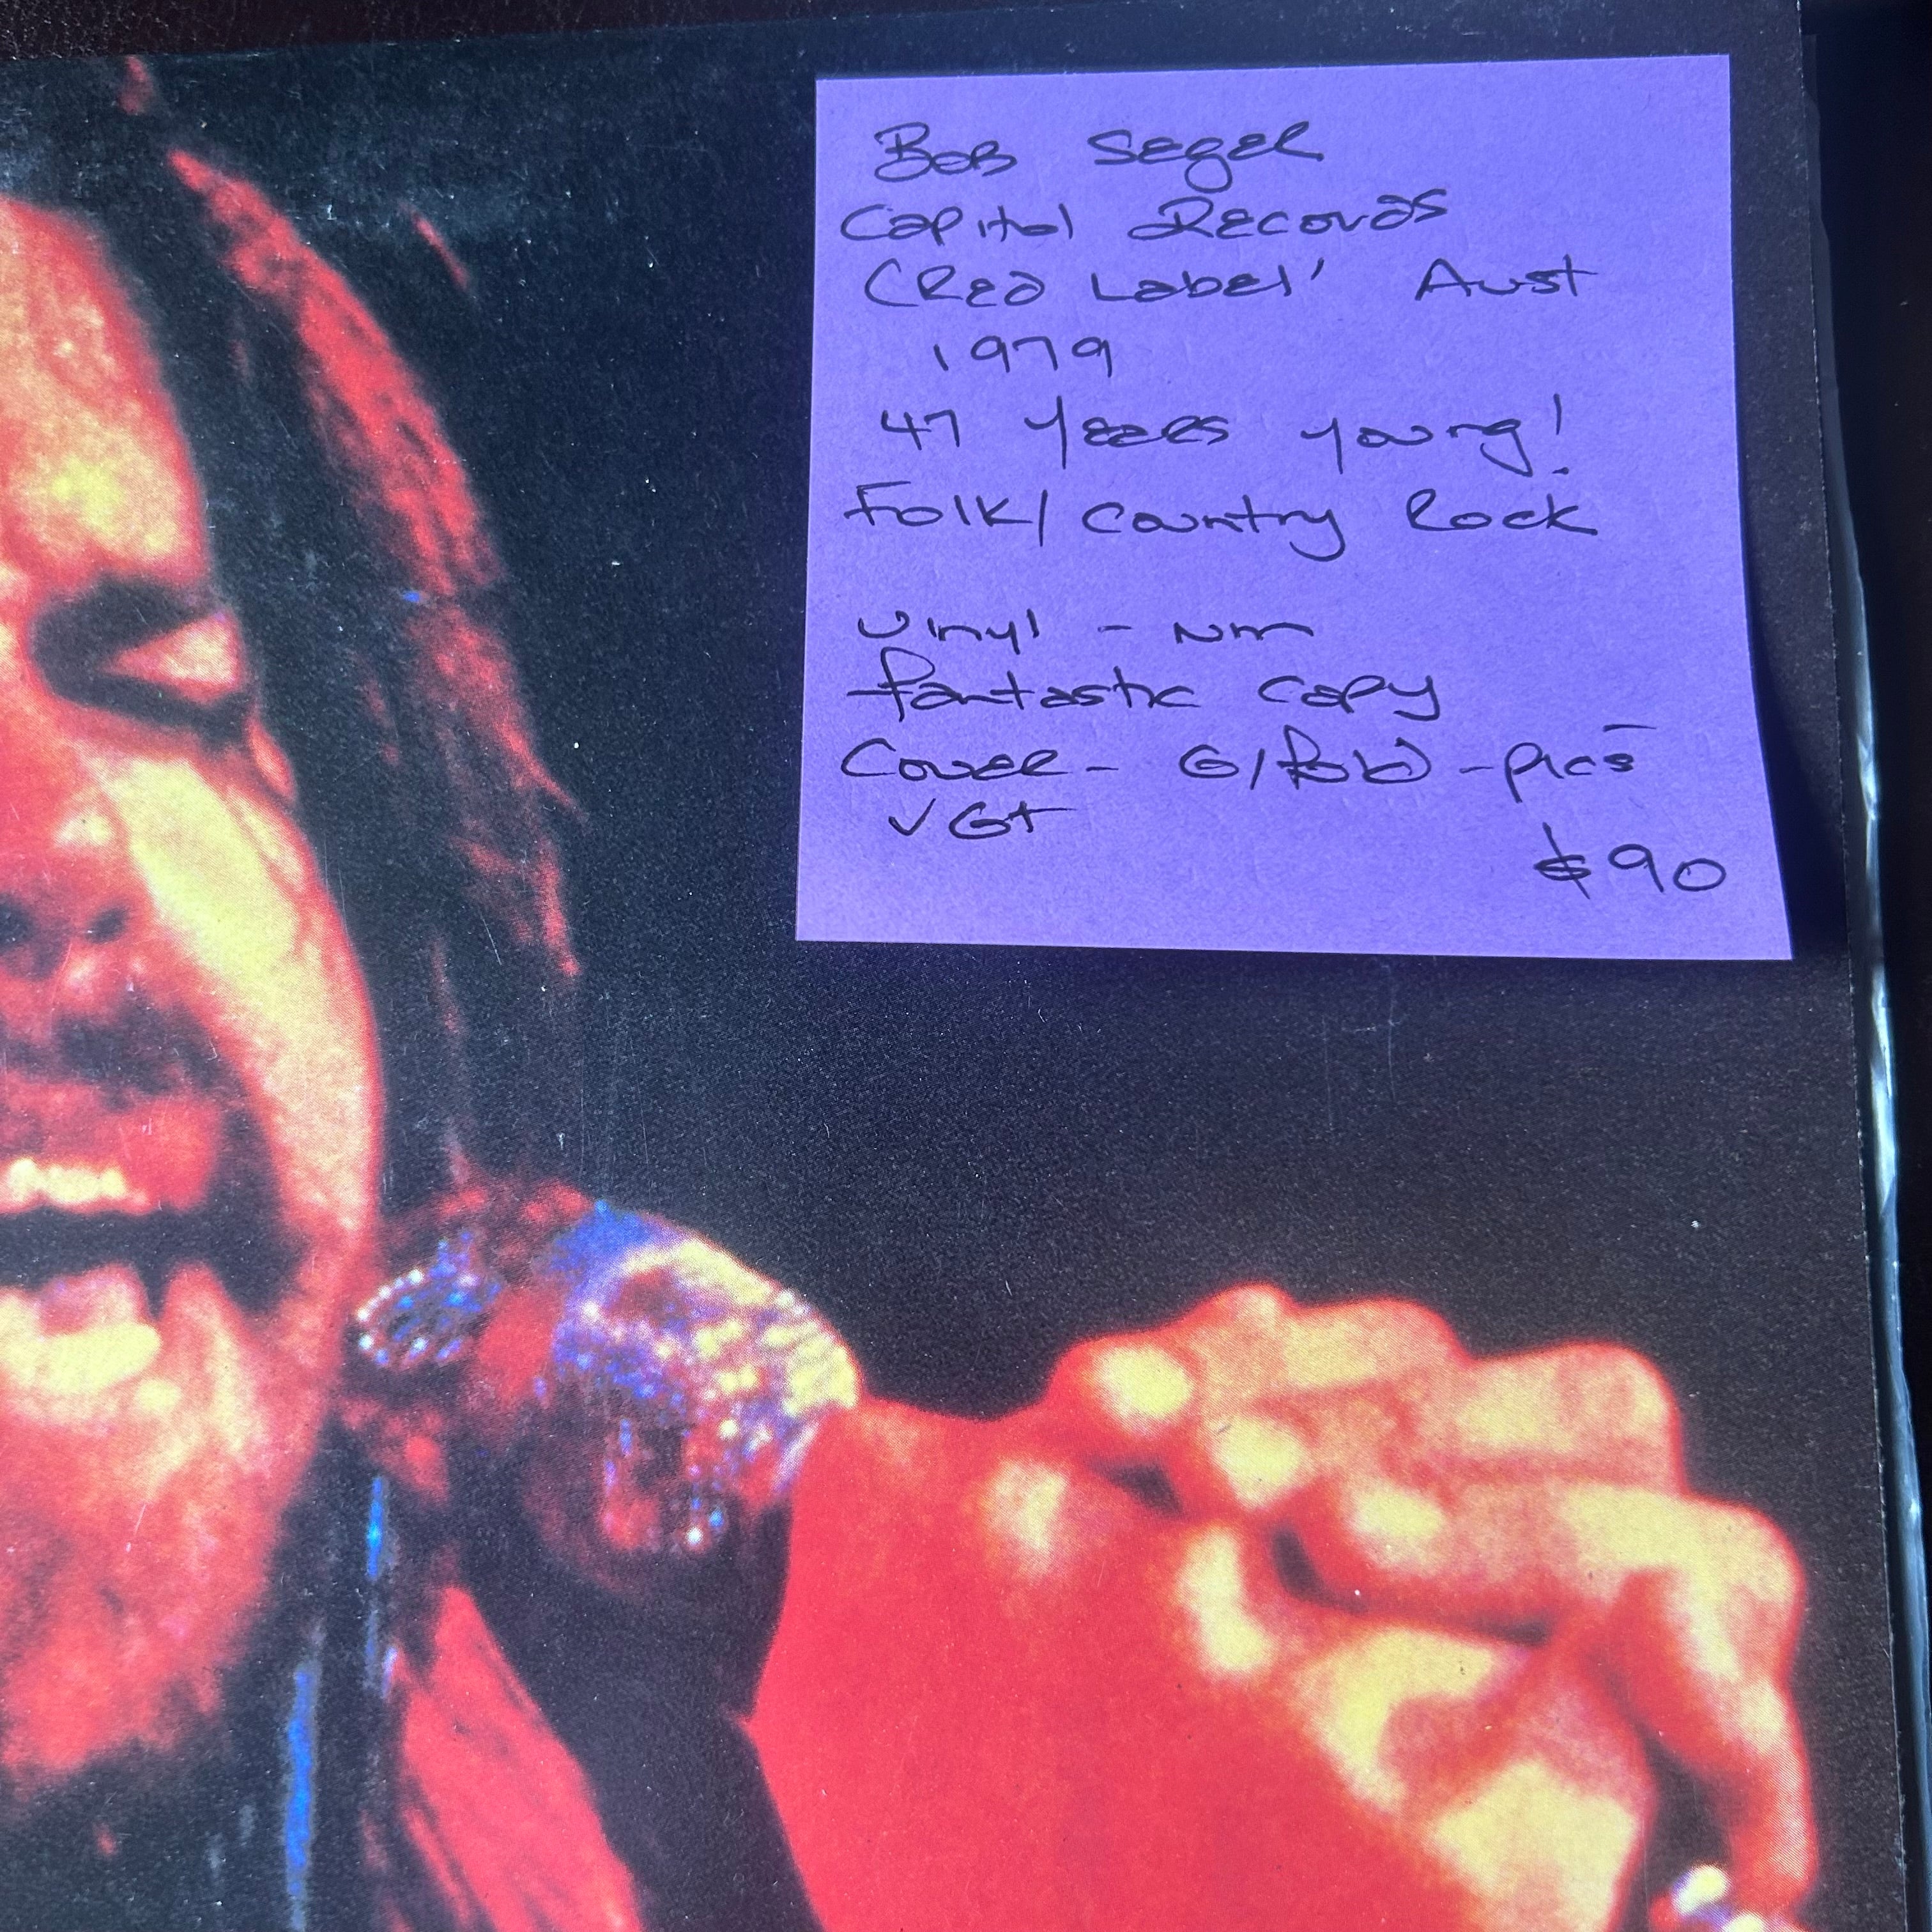 Bob Seger
Capitol Records
(Red Label' Aust
1979
47 years young!
Folk/Country Rock
Vinyl - NM
fantastic copy
Cover - G/fold - pics
VG+
$90